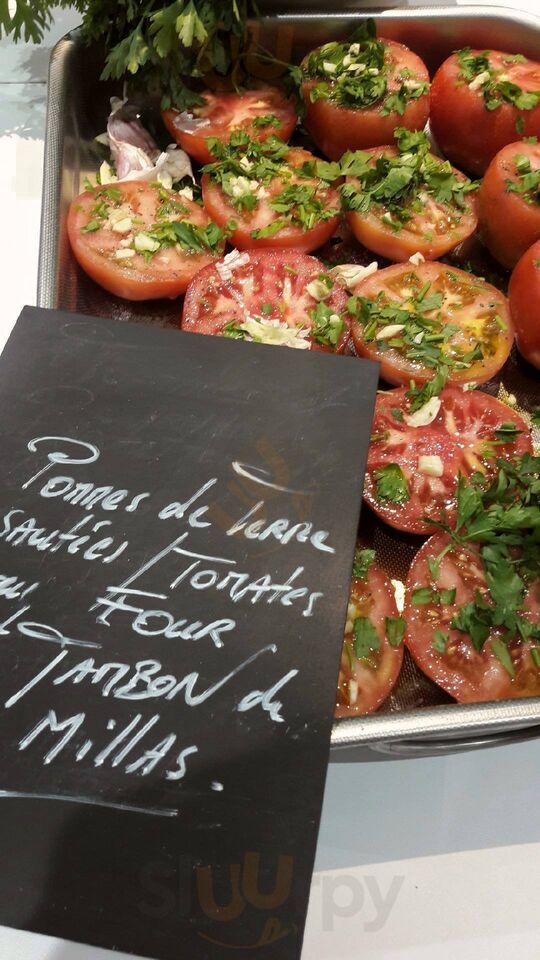 Pommes de Terre
sautées / Tomates
au Four
Jambon du
Millas.
sluurpy